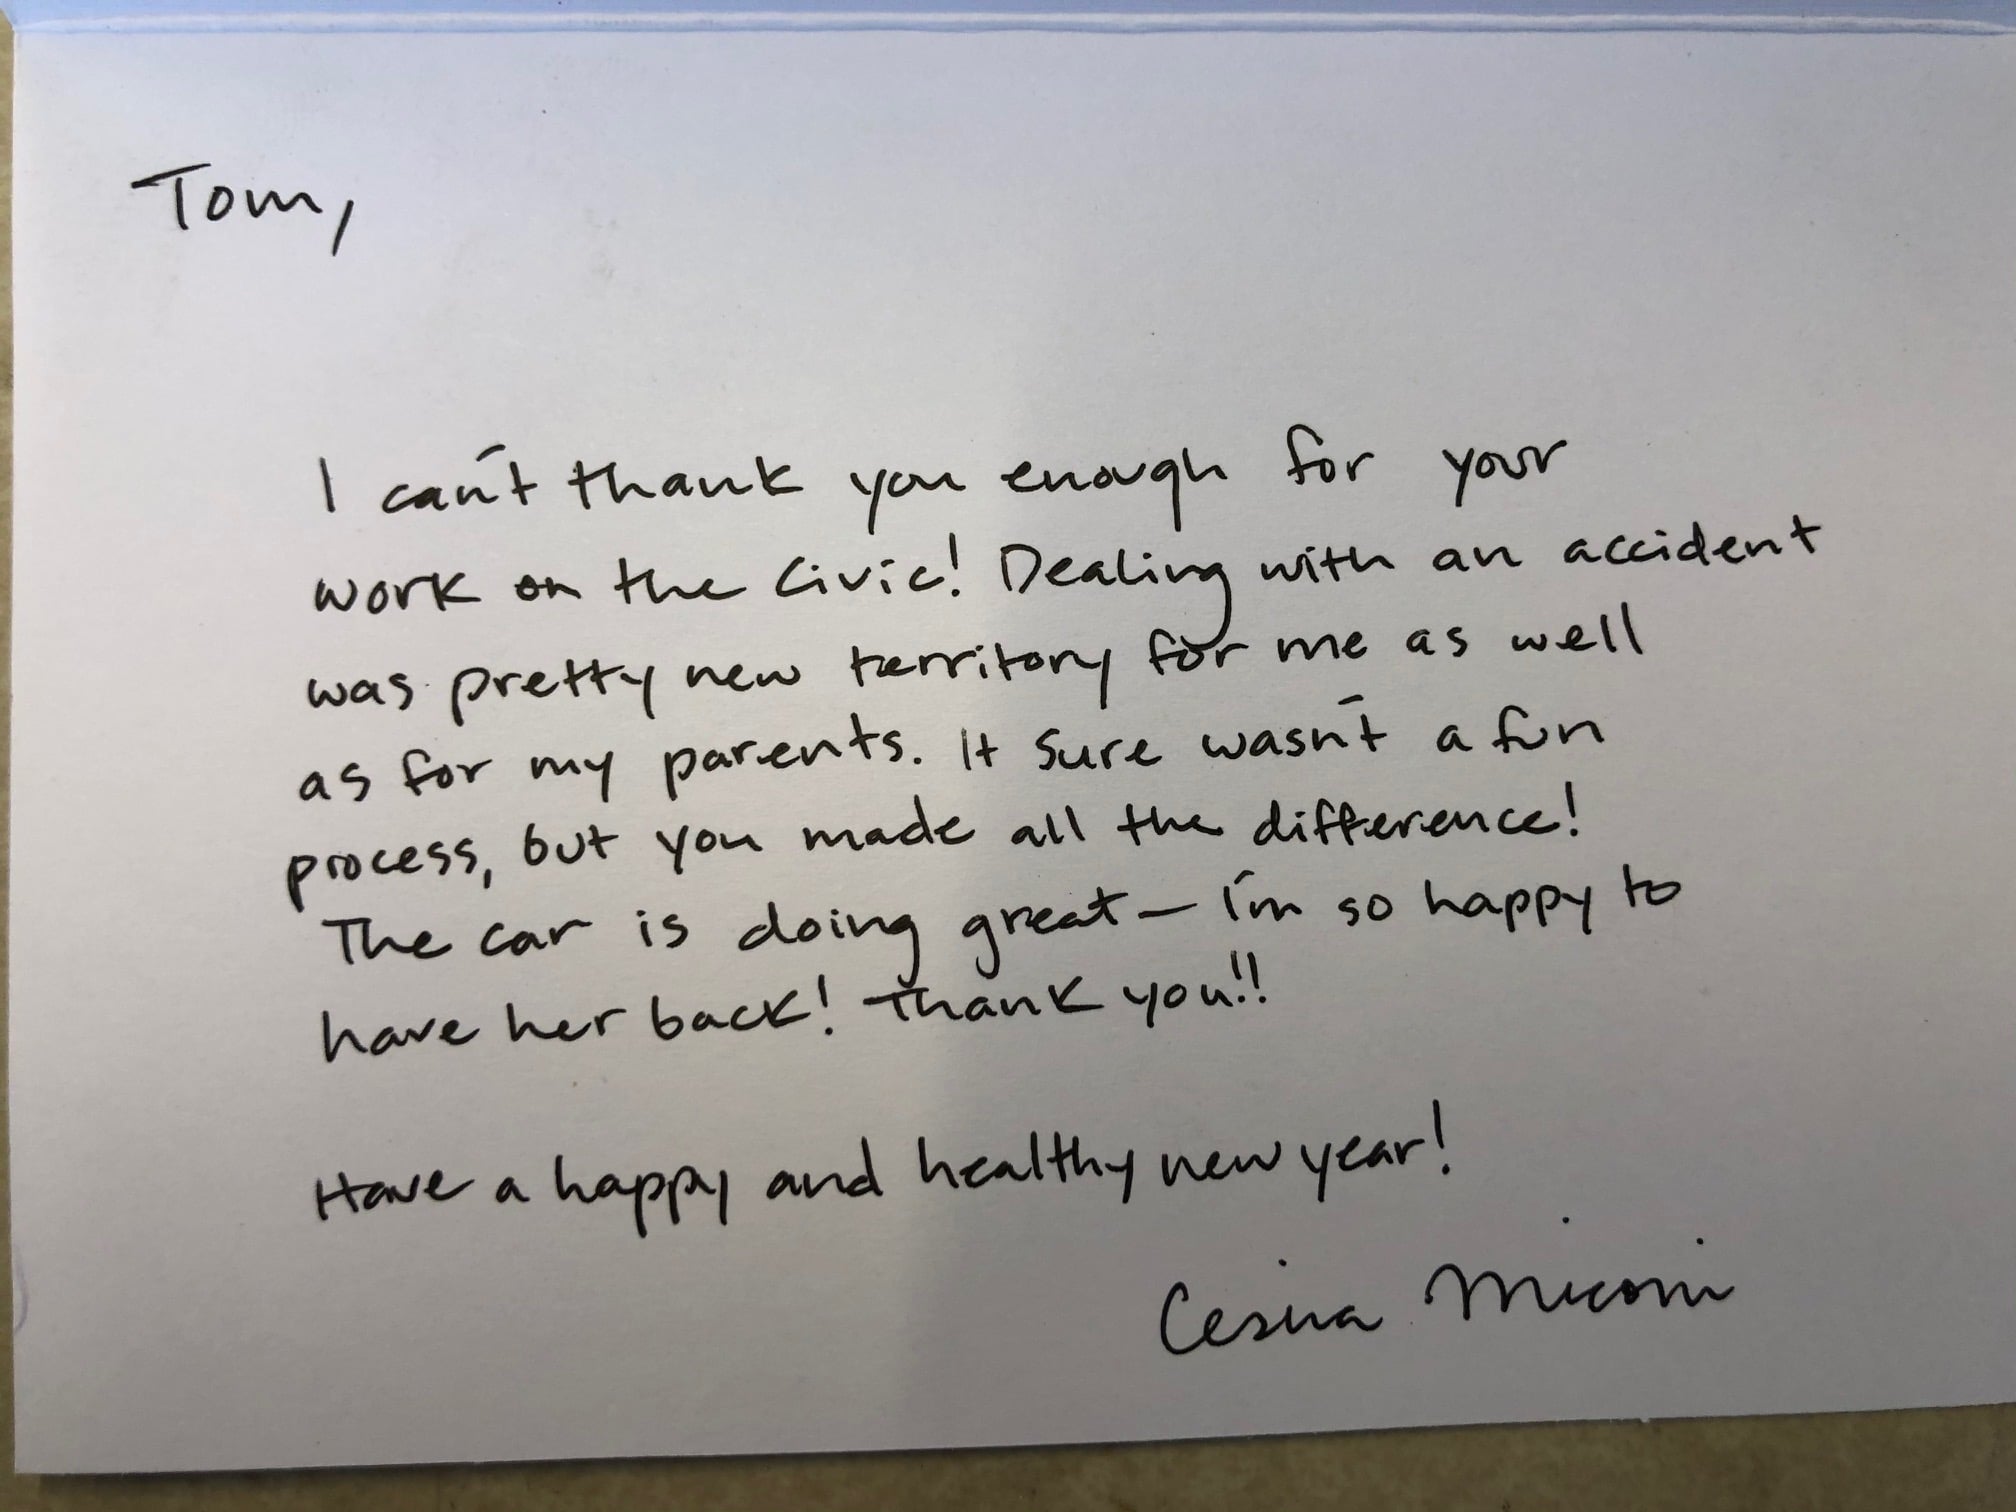 Tom,
I can't thank you enough for your
work on the Civic! Dealing with an accident
was pretty new territory for me as well
as for my parents. It sure wasn't a fun
process, but you made all the difference!
The car is doing great — I'm so happy to
have her back! Thank you!!
Have a happy and healthy new year!